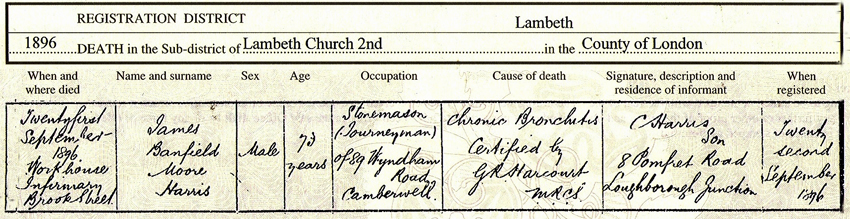 REGISTRATION DISTRICT Lambeth
1896 DEATH in the Sub-district of Lambeth Church 2nd in the County of London
When and where died
Name and surname
Sex
Age
Occupation
Cause of death
Signature, description and residence of informant
When registered
Twentyfirst
September
1896
Workhouse
Infirmary
Brook Street
James
Banfield
Moore
Harris
Male
73
years
Stonemason
(Journeyman)
of 89 Wyndham
Road
Camberwell
Chronic Bronchitis
Certified by
G R Harcourt
MRCS
C Harris
Son
8 Pomfret Road
Loughborough Junction
Twenty
second
September
1896